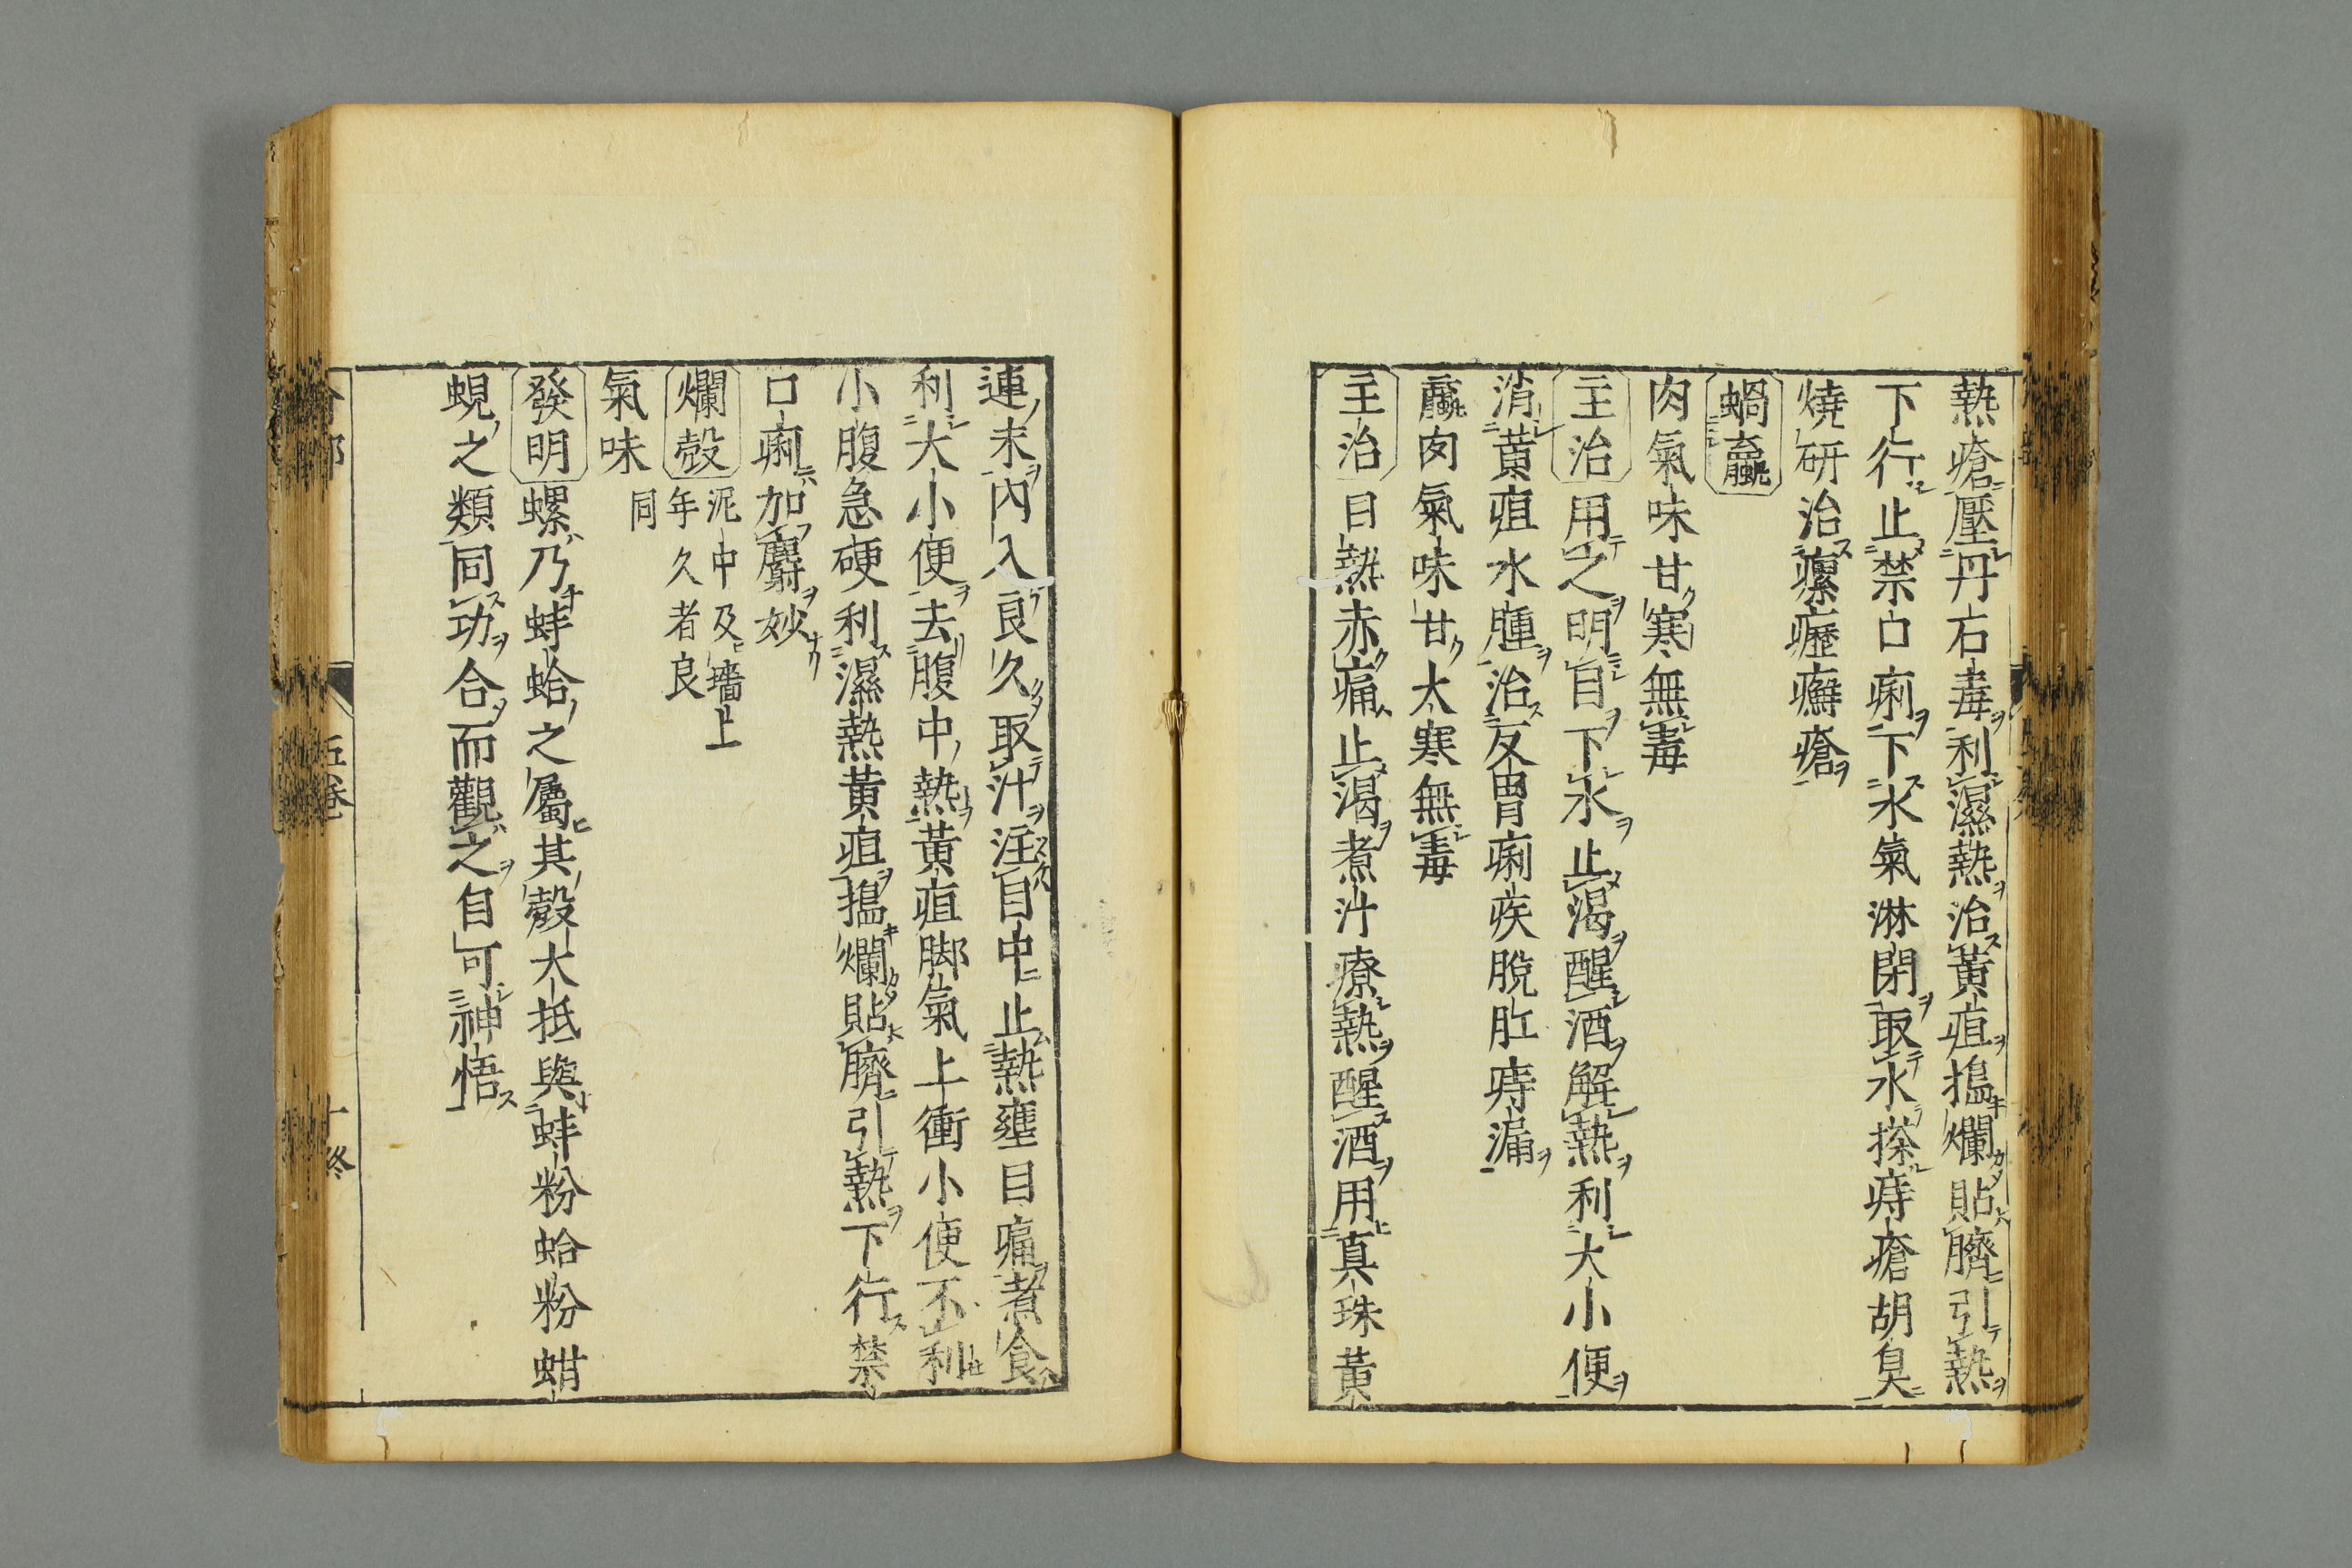 熱瘡壓丹石毒利濕熱治黃疸搗爛貼臍引熱
下行止禁口痢下水氣淋閉取水搽痔瘡胡臭
燒研治瘰癧癬瘡
蝸蠃
肉氣味甘寒無毒
主治用之明目下水止渴醒酒解熱利大小便
消黃疸水腫治反胃痢疾脫肛痔漏
蠃肉氣味甘大寒無毒
主治目熱赤痛止渴煮汁療熱醒酒用真珠黃
連末內入良久取汁注目中止熱壅目痛煮食
利大小便去腹中熱黃疸脚氣上衝小便不利
小腹急硬利濕熱黃疸搗爛貼臍引熱下行禁
口痢加麝妙
爛殼泥中及墻上
年久者良
氣味同
發明螺乃蚌蛤之屬其殼大抵與蚌粉蛤粉蚶
蜆之類同功合而觀之自可神悟
介部
五卷
十終